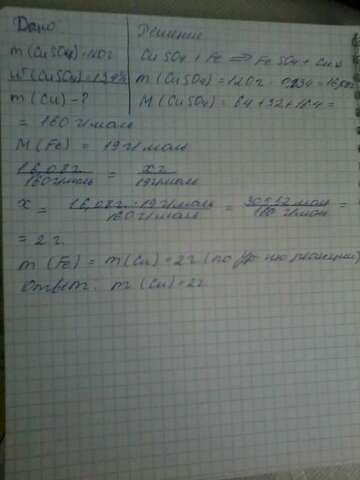 Дано
m(CuSO4)=120г
w(CuSO4)=13,4%
m(Cu)-?
Решение
CuSO4 + Fe ⟹ FeSO4 + Cu↓
m(CuSO4)=120г · 0,134 = 16,08г
M(CuSO4) = 64+32+16·4 =
= 160 г/моль
M(Fe) = 19 г/моль
16,08г / 160г/моль = xг / 19г/моль
x = 16,08г · 19г/моль / 160г/моль = / 160г/моль =
= 2 г.
m(Fe) = m(Cu) = 2г (по ур-ию реакции)
Ответ: m(Cu)=2г